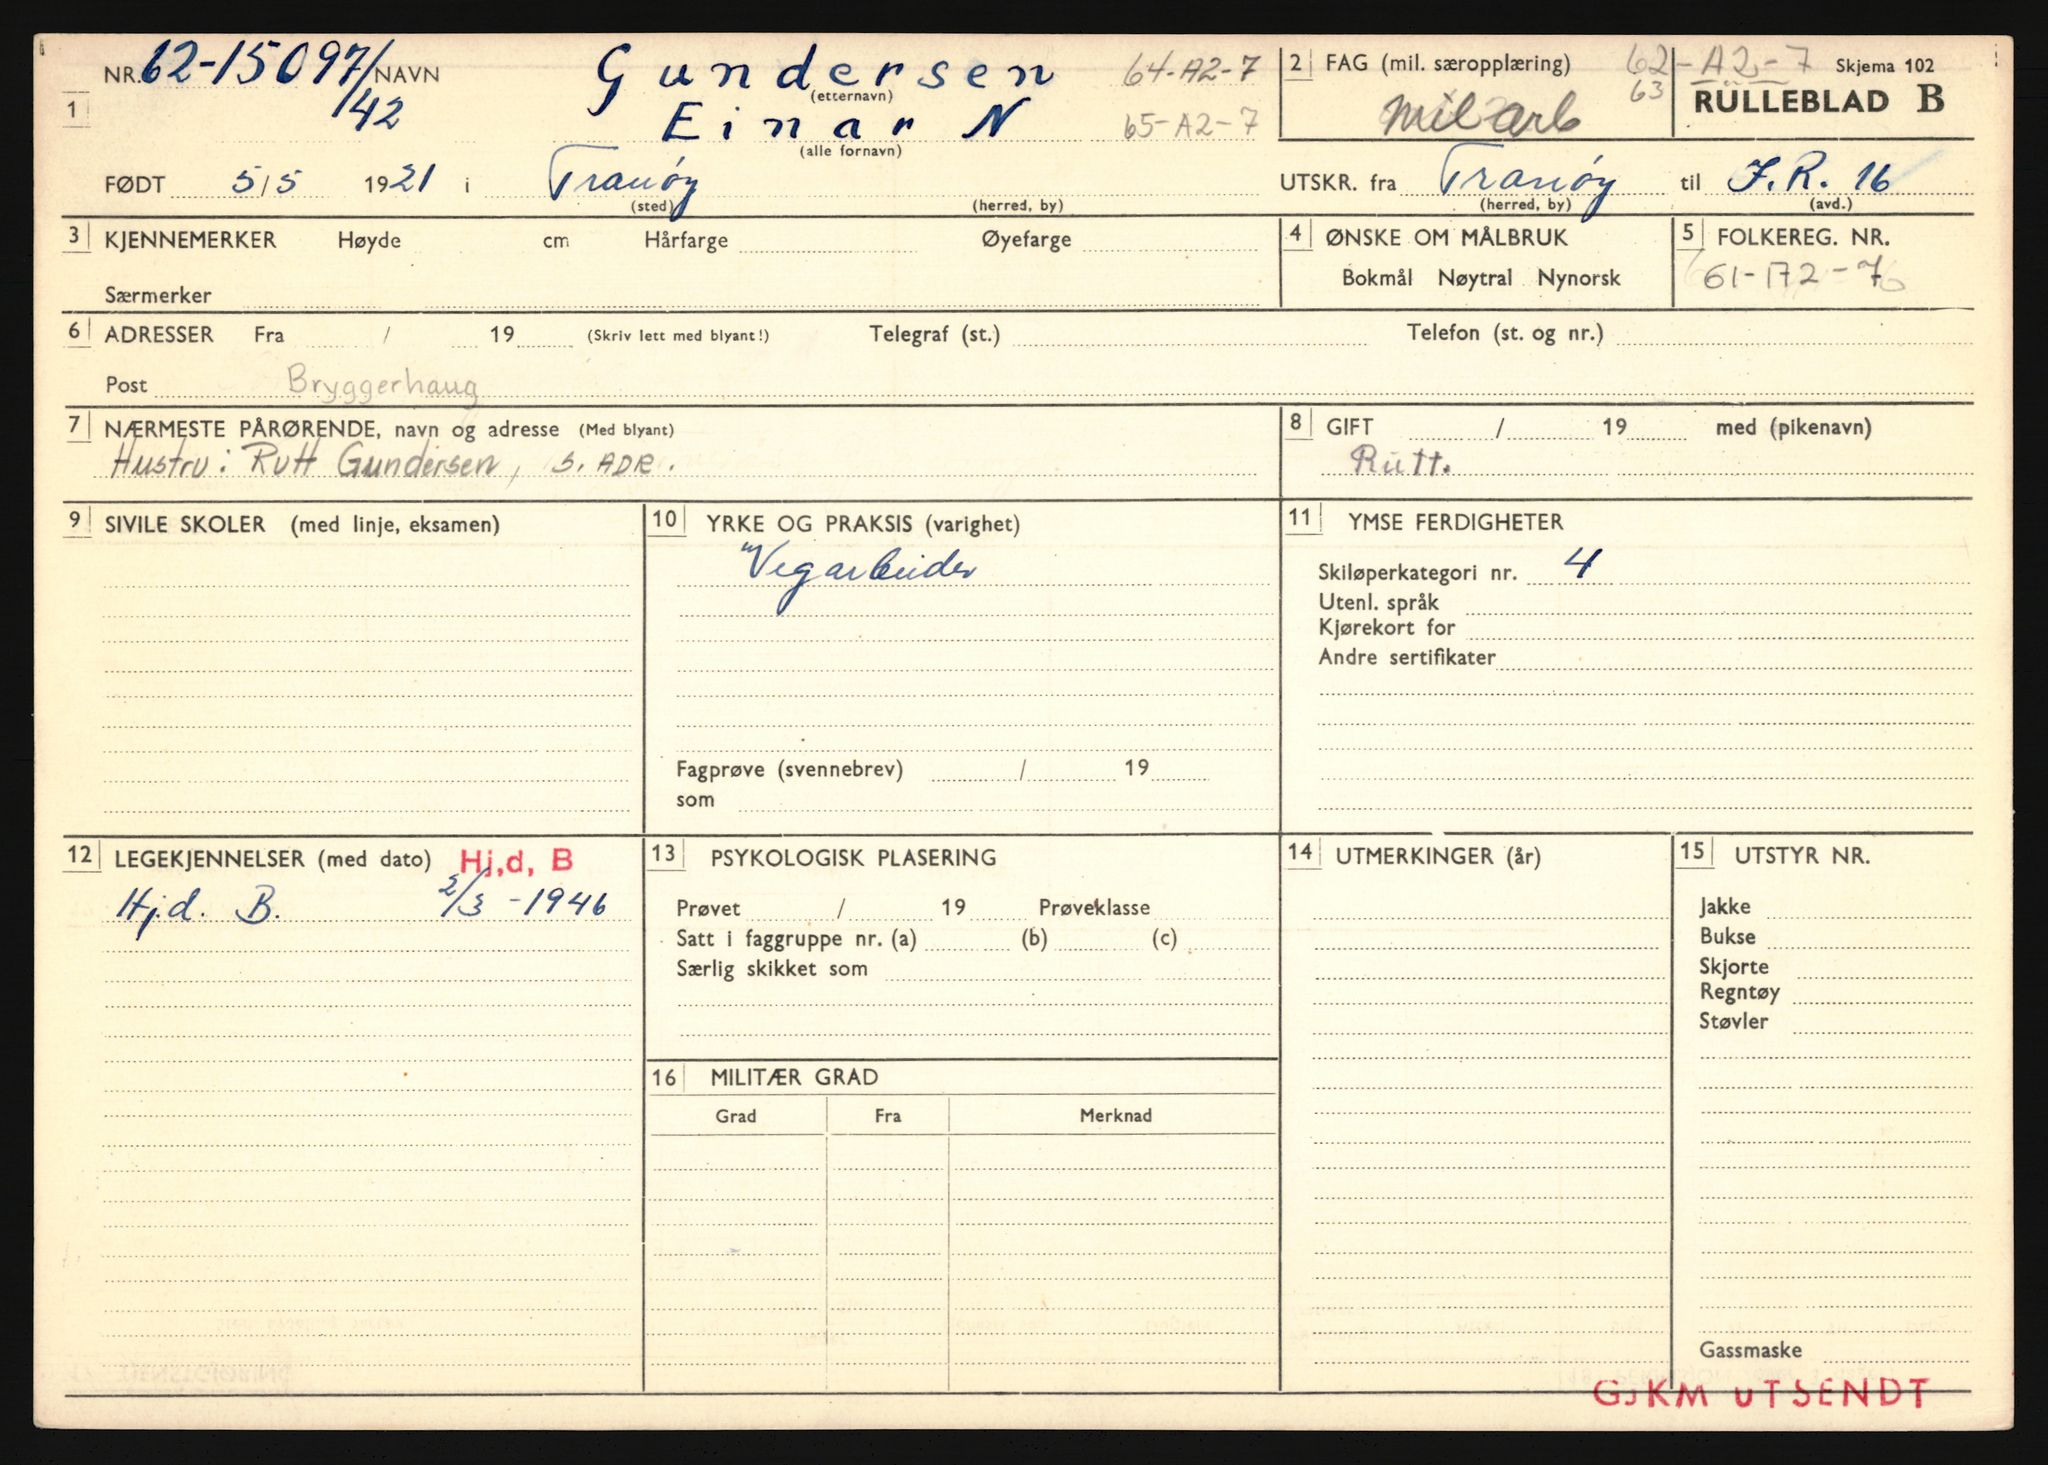 NR. 62-15097/42 NAVN Gundersen 64-A2-7
(etternavn)
1 Einar N 65-A2-7
(alle fornavn)
FØDT 5/5 1921 i Tranøy
(sted) (herred, by)
2 FAG (mil. særopplæring) 62-A2-7 Skjema 102
63
Mil arb RULLEBLAD B
UTSKR. fra Tranøy til I.R. 16
(herred, by) (avd.)
3 KJENNEMERKER Høyde cm Hårfarge Øyefarge
Særmerker
4 ØNSKE OM MÅLBRUK
Bokmål Nøytral Nynorsk
5 FOLKEREG. NR.
61-172-7
6 ADRESSER Fra / 19 (Skriv lett med blyant!) Telegraf (st.) Telefon (st. og nr.)
Post Bryggerhaug
7 NÆRMESTE PÅRØRENDE, navn og adresse (Med blyant)
Hustru: Rutt Gundersen, S. ADR.
8 GIFT / 19 med (pikenavn)
Rutt.
9 SIVILE SKOLER (med linje, eksamen)
10 YRKE OG PRAKSIS (varighet)
Vegarbeider
Fagprøve (svennebrev) / 19
som
11 YMSE FERDIGHETER
Skiløperkategori nr. 4
Utenl. språk
Kjørekort for
Andre sertifikater
12 LEGEKJENNELSER (med dato) Hj,d, B
Hj.d. B. 2/3 -1946
13 PSYKOLOGISK PLASERING
Prøvet / 19 Prøveklasse
Satt i faggruppe nr. (a) (b) (c)
Særlig skikket som
14 UTMERKINGER (år)
15 UTSTYR NR.
Jakke
Bukse
Skjorte
Regntøy
Støvler
Gassmaske
16 MILITÆR GRAD
Grad Fra Merknad
GJKM UTSENDT